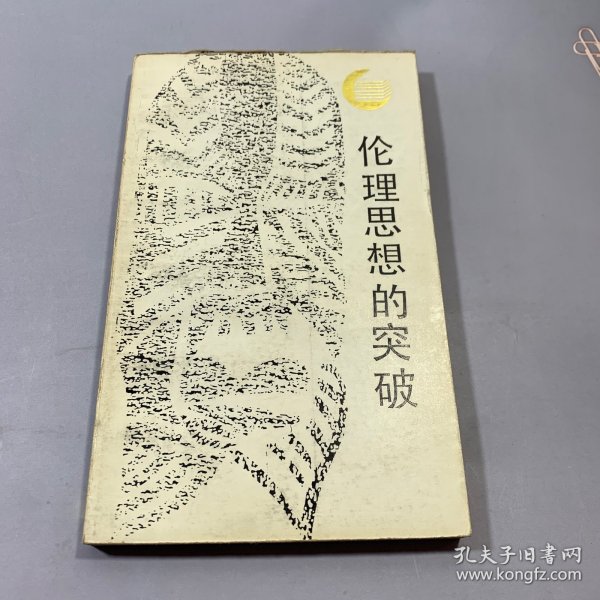 伦理思想的突破
孔夫子旧书网
www.kongfz.com